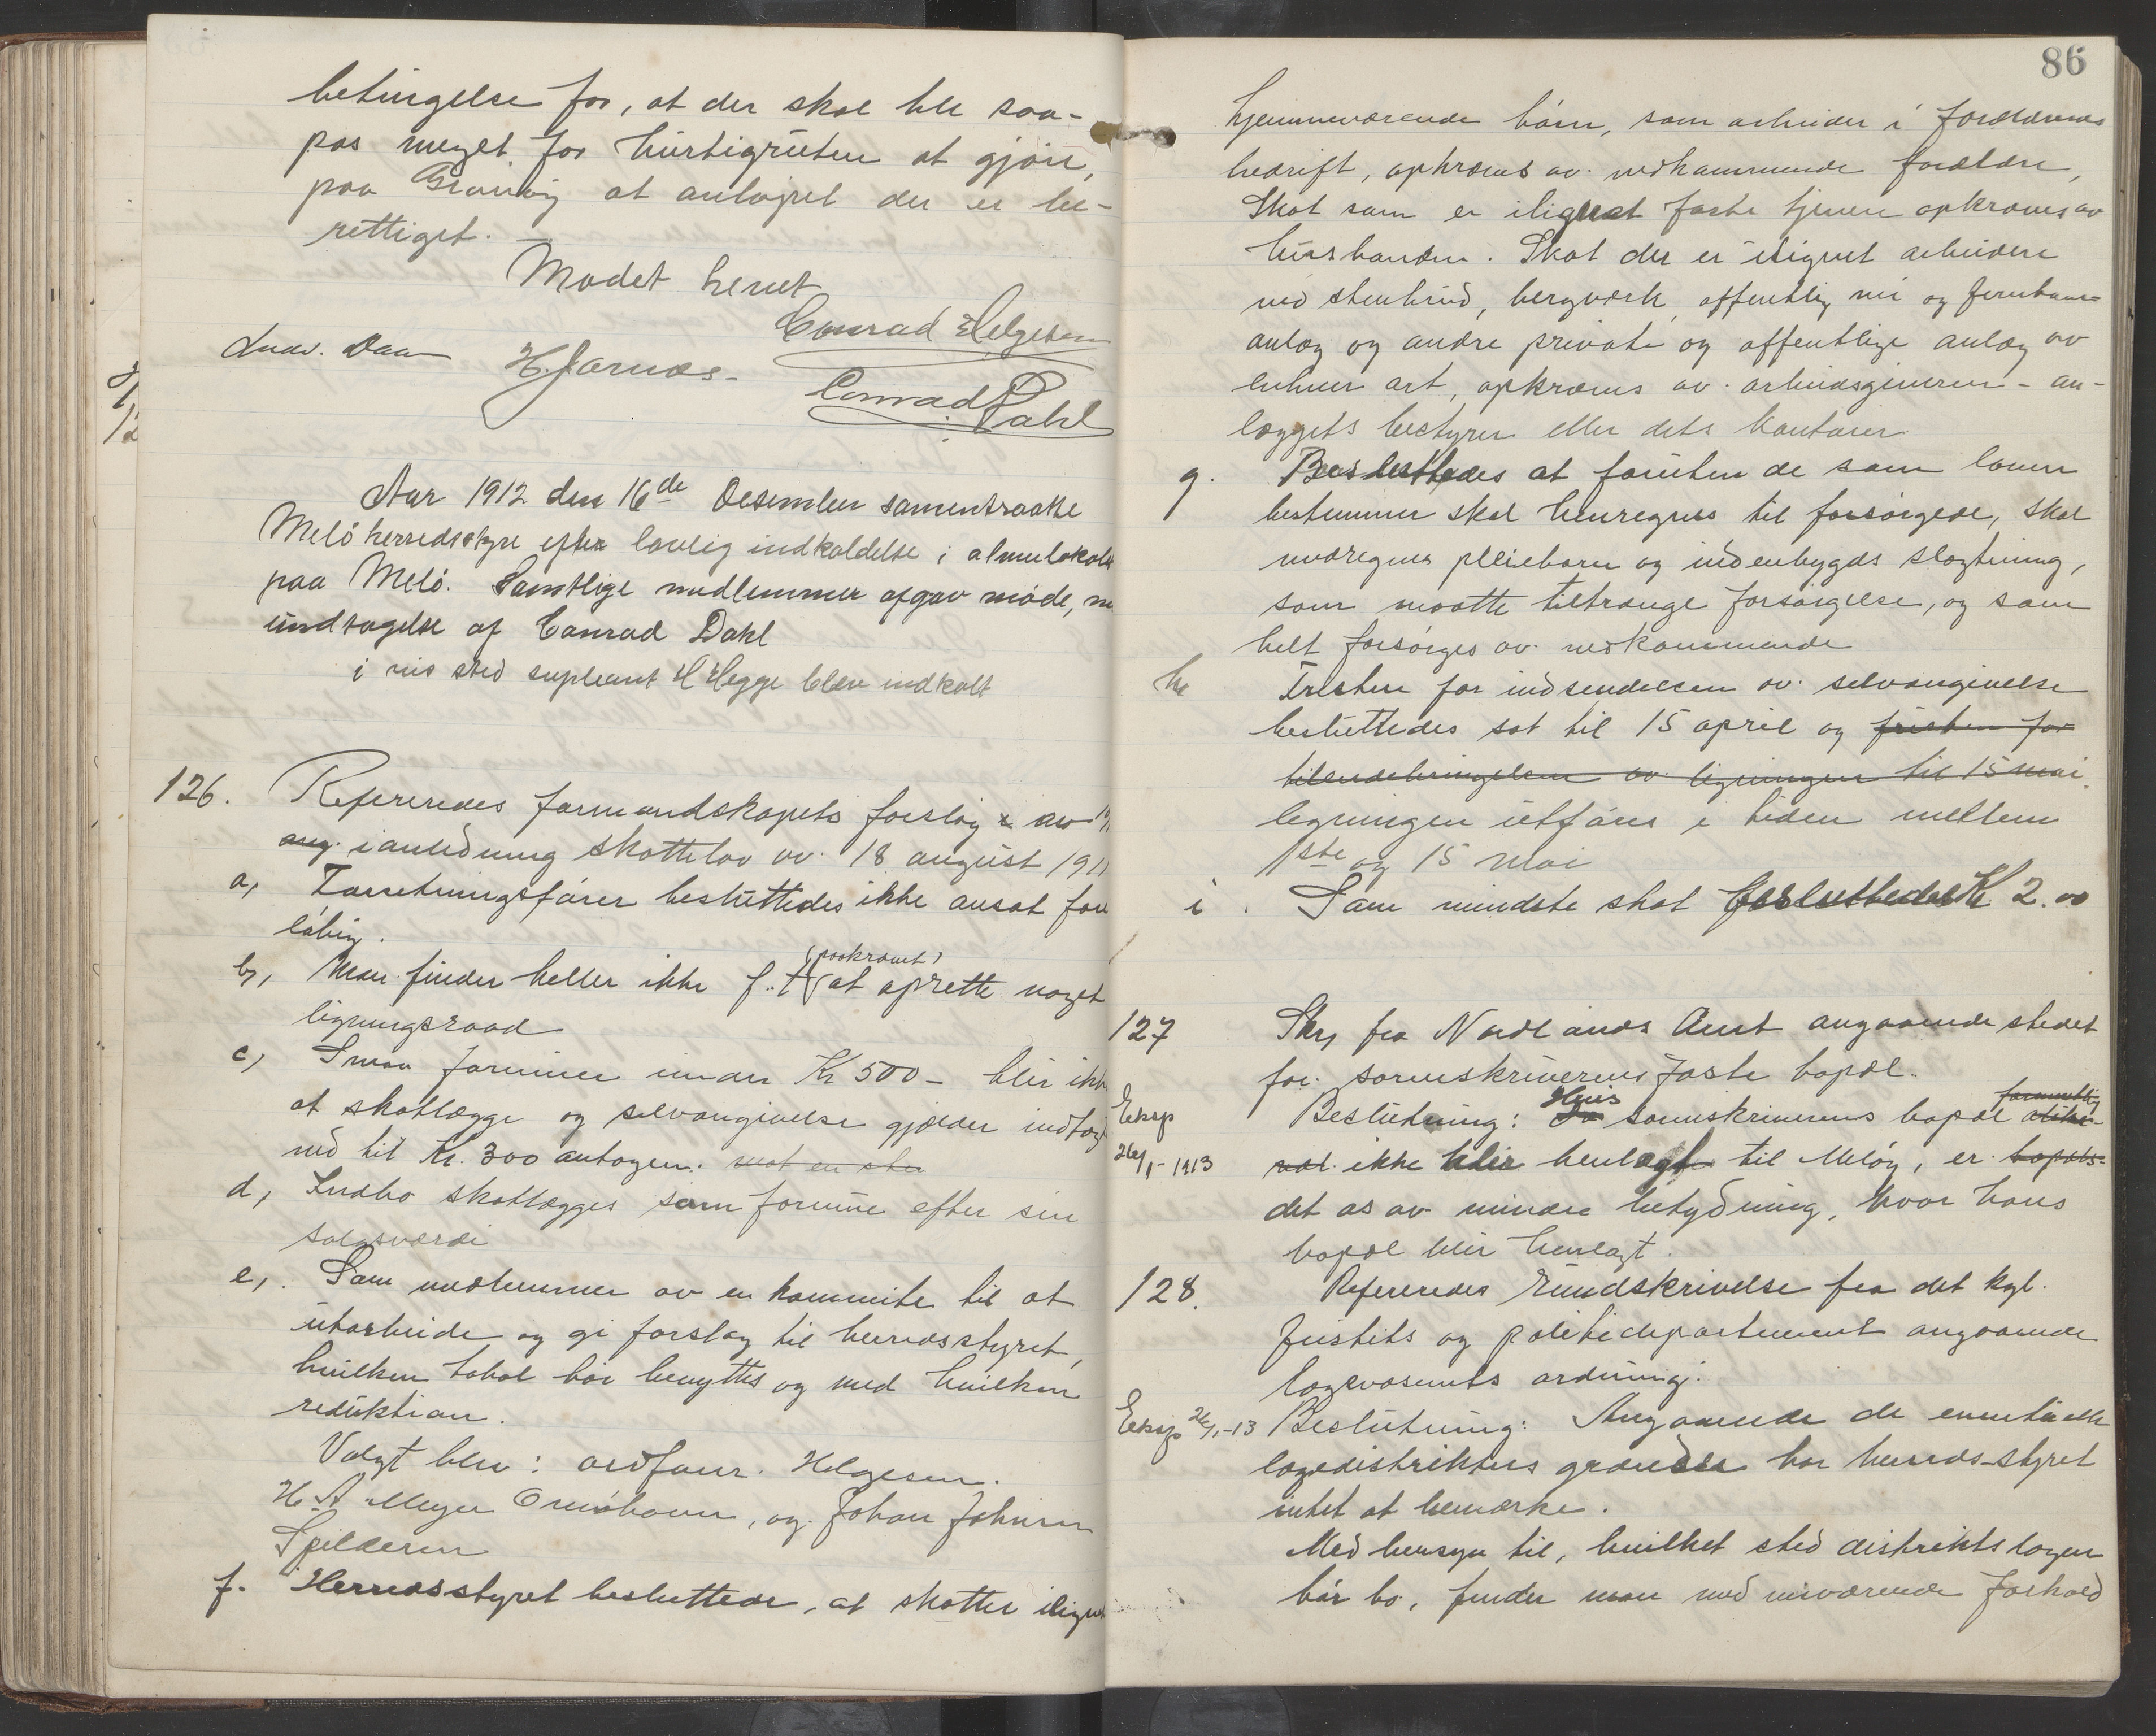 betingelse for, at der skal bli saa-
pas meget for hurtigruten at gjøre,
paa Grønøy at anløpet der er be-
rettiget. —
Mødet hevet
Conrad Helgesen
Ludv. Daa H. Jarnæs-
Conrad Dahl
Aar 1912 den 16de Desember samentraatte
Melö herredsstyre efter lovlig indkaldelse i almulokale
paa Melö. Samtlige medlemmer afgav möde, m
undtagelse af Conrad Dahl
i vis sted supleant H Hegge blev indkalt
126. Refereredes formandskapets forslag av
aug. i anledning skattelov av 18 august 1911
a, Forretningsfører besluttedes ikke ansat fore
löbig.
(paakrævet)
b, Man finder heller ikke f. t. at oprette noget
ligningsraad
c, Smaa formuer under Kr 500- blir ikke
at skatlægge og selvangivelse gjælder indtægt
ned til Kr. 300 antagen.
d, Indbo skatlægges som formue efter sin
salgsværdi
e, Som medlemmer av en kommite til at
utarbeide og gi forslag til herredsstyret,
hvilken tabel bør benyttes og med hvilken
reduktion.
Valgt blev: ordfører Helgesen.
H. A. Meyer Ørnöhavn, og Johan Johnsen
Spilderen
f. Herredsstyret besluttede, at skatter ilignet
86
hjemmeværende börn, som arbeider i forældrenes
bedrift, opkræves av vedkommende forældre,
Skat som er ilignet faste tjenere opkræves av
husbonden. Skat der er ilignet arbeidere
ved stenbrud, bergværk, offentlig vei og jernbane-
anlæg og andre private og offentlige anlæg av
enhver art, opkræves av arbeidsgiveren - an-
læggets bestyrer eller dets kontorer
g. Besluttedes at foruten de som loven
bestemmer skal henregnes til forsørgede, skal
medregnes pleiebarn og indenbygds slægtning,
som maatte tiltrænge forsørgelse, og som
helt forsörges av vedkommende
h Fristen for indsendelsen av selvangivelse
besluttedes sat til 15 april og fristen for
tilendebringelsen av ligningen til 15 mai.
ligningen utføres i tiden mellem
1ste og 15 mai
i. Som mindste skat besluttedes Kr 2.00
127 Skr, fra Nordlands Amt angaaende stedet
for sorenskriverens faste bopæl.
Hvis
formentlig
Eksp Beslutning: sorenskriverens bopæl
26/1-1913 ikke blir henlagt til Melöy, er bopæls-
det os av mindre betydning, hvor hans
bopæl blir henlagt.
128. Refereredes rundskrivelse fra det kgl.
Justits og politidepartement angaaende
lægevæsenets ordning.
Eksp 26/1-13 Beslutning: Angaaende de eventuelle
lægedistrikters grændser har herreds-styret
intet at bemærke.
Med hensyn til, hvilket sted distriktslægen
bør bo, finder man ved nuværende forhold